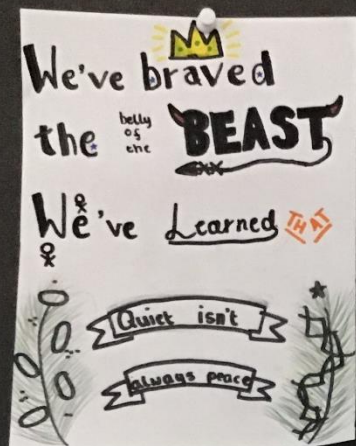 We've braved
the belly of the BEAST
We've Learned THAT
Quiet isn't
always peace